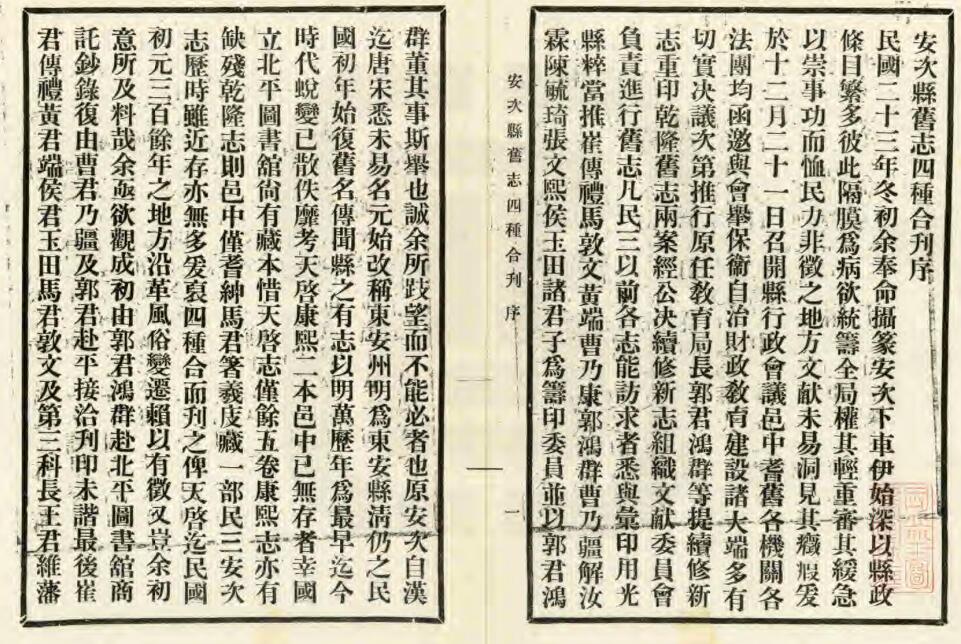 安次縣舊志四種合刊序
民國二十三年冬初余奉命攝篆安次下車伊始深以縣政
條目繁多彼此隔膜爲病欲統籌全局權其輕重審其緩急
以崇事功而恤民力非徵之地方文献未易洞見其癥瘕爰
於十二月二十一日召開縣行政會議邑中耆舊各機關各
法團均函邀與會舉保衛自治財政教育建設諸大端多有
切實决議次第推行原任教育局長郭君鴻群等提續修新
志重印乾隆舊志兩案經公决續修新志組織文献委員會
負責進行舊志凡民三以前各志能訪求者悉與彙印用光
縣粹當推崔傳禮馬敦文黃端曹乃康郭鴻群曹乃疆解汝
霖陳毓琦張文熙侯玉田諸君子爲籌印委員並以郭君鴻
安次縣舊志四種合刊 序 一
群董其事斯舉也誠余所跂望而不能必者也原安次自漢
迄唐宋悉未易名元始改稱東安州明爲東安縣淸仍之民
國初年始復舊名傳聞縣之有志以明萬歷年爲最早迄今
時代蛻變已散佚靡考天啓康熙二本邑中已無存者幸國
立北平圖書舘尙有藏本惜天啓志僅餘五卷康熙志亦有
缺殘乾隆志則邑中僅耆紳馬君箸羲庋藏一部民三安次
志歷時雖近存亦無多爰裒四種合而刊之俾天啓迄民國
初元三百餘年之地方沿革風俗變遷賴以有徵又豈余初
意所及料哉余亟欲觀成初由郭君鴻群赴北平圖書舘商
託鈔錄復由曹君乃疆及郭君赴平接洽刋印未諧最後崔
君傳禮黃君端侯君玉田馬君敦文及第三科長王君維藩